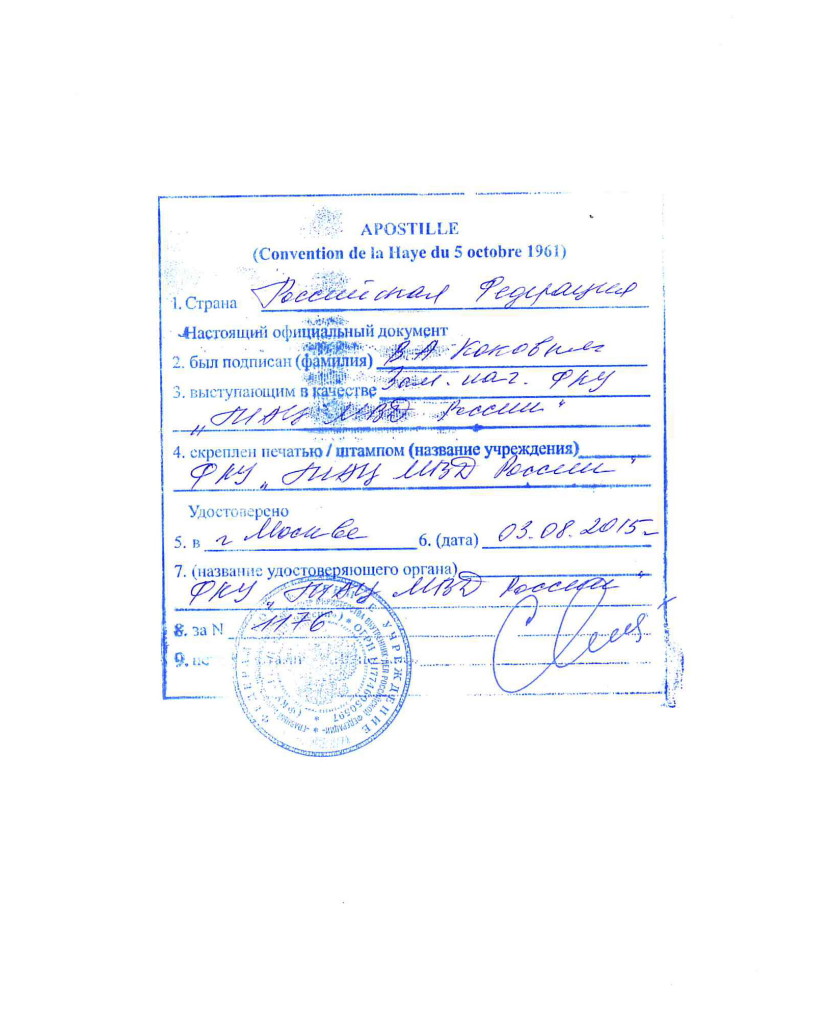 APOSTILLE
(Convention de la Haye du 5 octobre 1961)
1. Страна Российская Федерация
Настоящий официальный документ
2. был подписан (фамилия) В.А. Каковкин
3. выступающим в качестве Зам. нач. ФКУ
„ГИАЦ МВД России“
4. скреплен печатью / штампом (название учреждения)
ФКУ „ГИАЦ МВД России“
Удостоверено
5. в г. Москве 6. (дата) 03.08.2015
7. (название удостоверяющего органа)
ФКУ „ГИАЦ МВД России“
8. за N 1176
9.